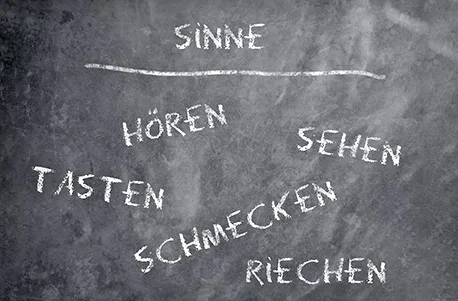 SINNE
HÖREN
SEHEN
TASTEN
SCHMECKEN
RIECHEN